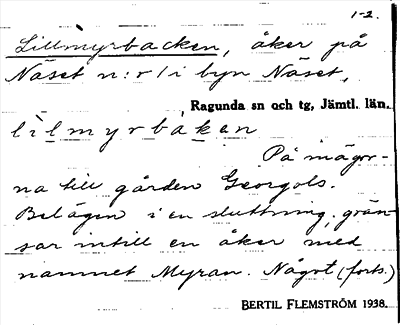 1-2.
Lillmyrbacken, åker på
Näset n:r 1 i byn Näset,
Ragunda sn och tg, Jämtl. län.
lilmyrbaken
På mägor-
na till gården Georgols.
Belägen i en sluttning, grän-
sar intill en åker med
namnet Myran. Något (forts.)
BERTIL FLEMSTRÖM 1938.